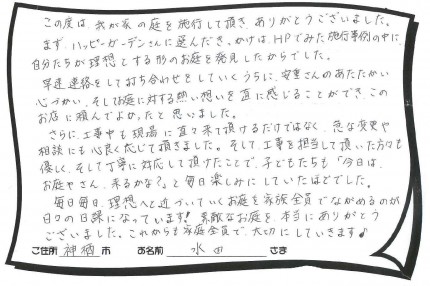 この度は、我が家の庭を施行して頂き、ありがとうございました。
まず、ハッピーガーデンさんに選んだきっかけは、HPでみた施行事例の中に
自分たちが理想とする形のお庭を発見したからでした。
早速連絡をして打ち合わせをしていくうちに、安重さんのあたたかい
心づかい、そしてお庭に対する熱い想いを直に感じることができ、この
お店に頼んでよかったと思いました。
さらに、工事中も現場に直々来て頂けるだけではなく、急な変更や
相談にも心良く応じて頂きました。そして、工事を担当して頂いた方々も
優しく、そして丁寧に対応して頂けたことで、子どもたちも「今日は、
お庭やさん、来るかな?」と毎日楽しみにしていたほどでした。
毎日毎日、理想へと近づいていくお庭を家族全員でながめるのが
日々の日課になっています!素敵なお庭を、本当にありがとう
ございました。これからも家庭全員で、大切にしていきます♪
ご住所 神栖 市 お名前 水田 さま